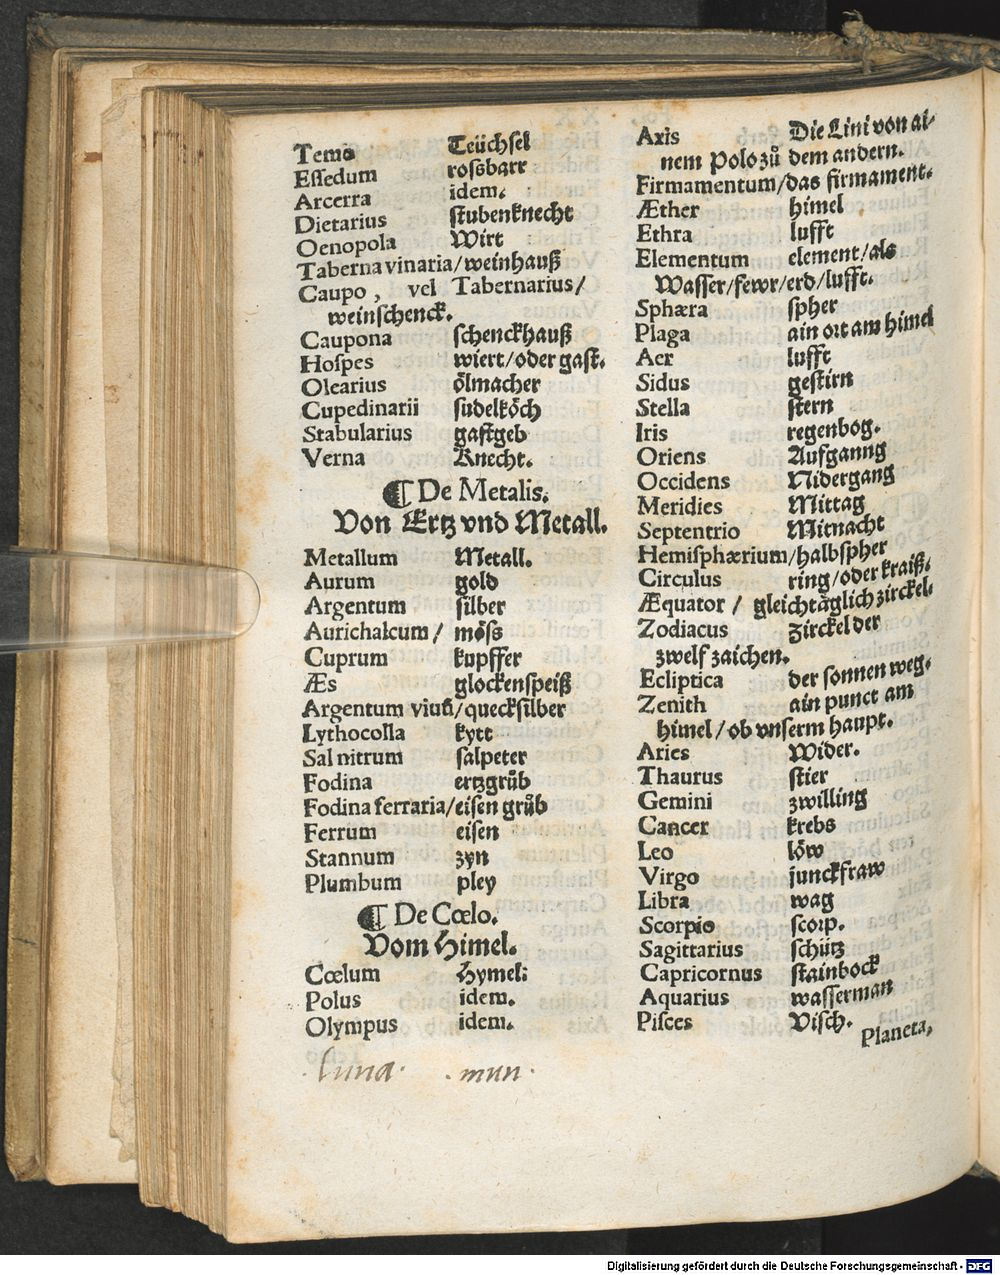 Temo Teüchsel
Eſſedum roſsbarr
Arcerra idem.
Dietarius ſtubenknecht
Oenopola Wirt
Taberna vinaria/weinhauß
Caupo, vel Tabernarius/
weinſchenck.
Caupona ſchenckhauß
Hoſpes wiert/oder gaſt.
Olearius ölmacher
Cupedinarii ſudelköch
Stabularius gaſtgeb
Verna Knecht.
¶ De Metalis.
Von Ertz vnd Metall.
Metallum Metall.
Aurum gold
Argentum ſilber
Aurichalcum/ möſs
Cuprum kupffer
Æs glockenſpeiß
Argentum viuū/queckſilber
Lythocolla kytt
Sal nitrum ſalpeter
Fodina ertzgrůb
Fodina ferraria/eiſen grůb
Ferrum eiſen
Stannum zyn
Plumbum pley
¶ De Cœlo.
Vom Himel.
Cœlum Hymel:
Polus idem.
Olympus idem.
.luna. .mun.
Axis Die Lini von ai-
nem Polo zů dem andern.
Firmamentum/das firmament.
Æther himel
Ethra lufft
Elementum element/als
Waſſer/fewr/erd/lufft.
Sphæra ſpher
Plaga ain ort am himel
Aer lufft
Sidus geſtirn
Stella ſtern
Iris regenbog.
Oriens Aufganng
Occidens Nidergang
Meridies Mittag
Septentrio Mitnacht
Hemiſphærium/halbſpher
Circulus ring/oder kraiß.
Æquator / gleichtäglich zirckel.
Zodiacus Zirckel der
zwelf zaichen.
Ecliptica der ſonnen weg.
Zenith ain punct am
himel/ob vnſerm haupt.
Aries Wider.
Thaurus ſtier
Gemini zwilling
Cancer krebs
Leo löw
Virgo junckfraw
Libra wag
Scorpio ſcorp.
Sagittarius ſchütz
Capricornus ſtainbock
Aquarius waſſerman
Piſces Viſch.
Planeta,
Digitalisierung gefördert durch die Deutsche Forschungsgemeinschaft - DFG